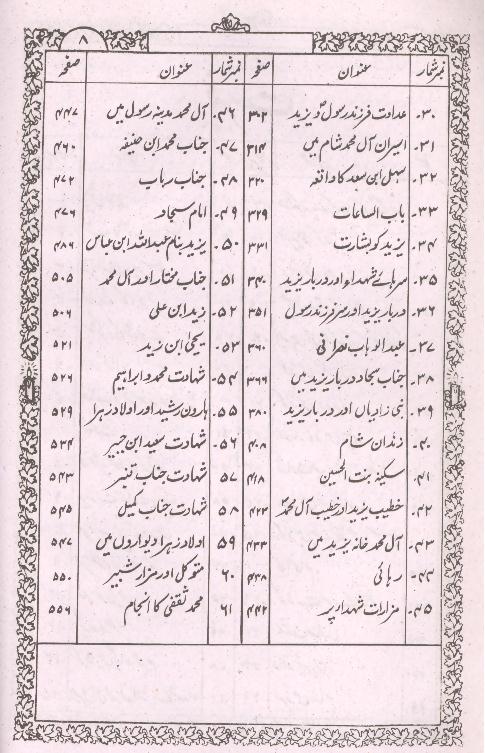 ۸
نمبر شمار عنوان صفحہ نمبر شمار عنوان صفحہ
۳۰۔ عداوت فرزند رسولؐ و یزید ۳۰۲ ۴۶۔ آل محمد مدینہ رسول میں ۴۴۷
۳۱۔ اسیران آل محمد شام میں ۳۱۴ ۴۷۔ جناب محمد ابن حنفیہ ۴۶۰
۳۲۔ سہل ابن سعد کا واقعہ ۳۲۰ ۴۸۔ جناب رباب ۴۷۲
۳۳۔ باب الساعات ۳۲۹ ۴۹۔ امام سجاد ۴۷۶
۳۴۔ یزید کو بشارت ۳۳۱ ۵۰۔ یزید بنام عبداللہ ابن عباس ۴۸۶
۳۵۔ سرہائے شہداء اور دربار یزید ۳۴۰ ۵۱۔ جناب مختار اور آل محمد ۵۰۵
۳۶۔ دربار یزید اور سر فرزند رسول ۳۵۱ ۵۲۔ زید ابن علی ۵۰۶
۳۷۔ عبدالوہاب نصرانی ۳۶۰ ۵۳۔ یحییٰ ابن زید ۵۲۱
۳۸۔ جناب سجاد دربار یزید میں ۳۶۶ ۵۴۔ شہادت محمد و ابراہیم ۵۲۶
۳۹۔ نبی زادیاں اور دربار یزید ۳۸۰ ۵۵۔ ہارون رشید اور اولاد زہرا ۵۲۹
۴۰۔ زندان شام ۴۰۸ ۵۶۔ شہادت سعید ابن جبیر ۵۳۴
۴۱۔ سکینہ بنت الحسین ۴۱۸ ۵۷۔ شہادت جناب قنبر ۵۴۳
۴۲۔ خطیب یزید اور خطیب آل محمدؐ ۴۲۲ ۵۸۔ شہادت جناب کمیل ۵۴۵
۴۳۔ آل محمد خانہ یزید میں ۴۳۳ ۵۹۔ اولاد زہرا دیواروں میں ۵۴۷
۴۴۔ رہائی ۴۳۸ ۶۰۔ متوکل اور مزار شبیر ۵۵۰
۴۵۔ مزارات شہدا پر ۴۴۲ ۶۱۔ محمد ثقفی کا انجام ۵۵۶